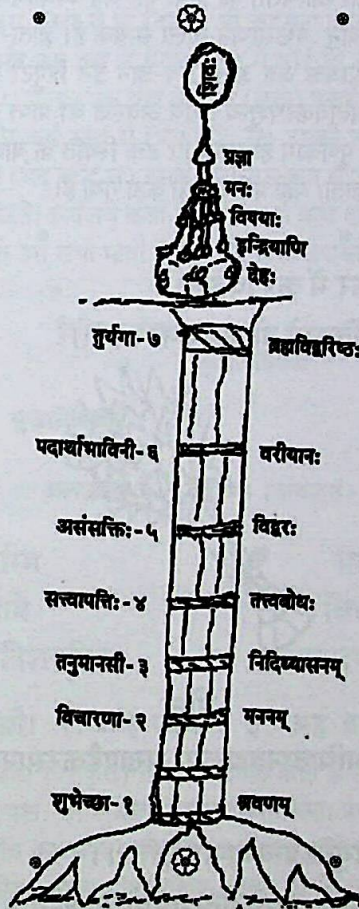 शिवः
प्रज्ञा
मनः
विषयाः
इन्द्रियाणि
देहः
तुर्यगा-७ ब्रह्मविद्वरिष्ठः
पदार्थाभाविनी-६ वरीयानः
असंसक्तिः-५ विद्वरः
सत्त्वापत्तिः-४ तत्त्वबोधः
तनुमानसी-३ निदिध्यासनम्
विचारणा-२ मननम्
शुभेच्छा-१ श्रवणम्